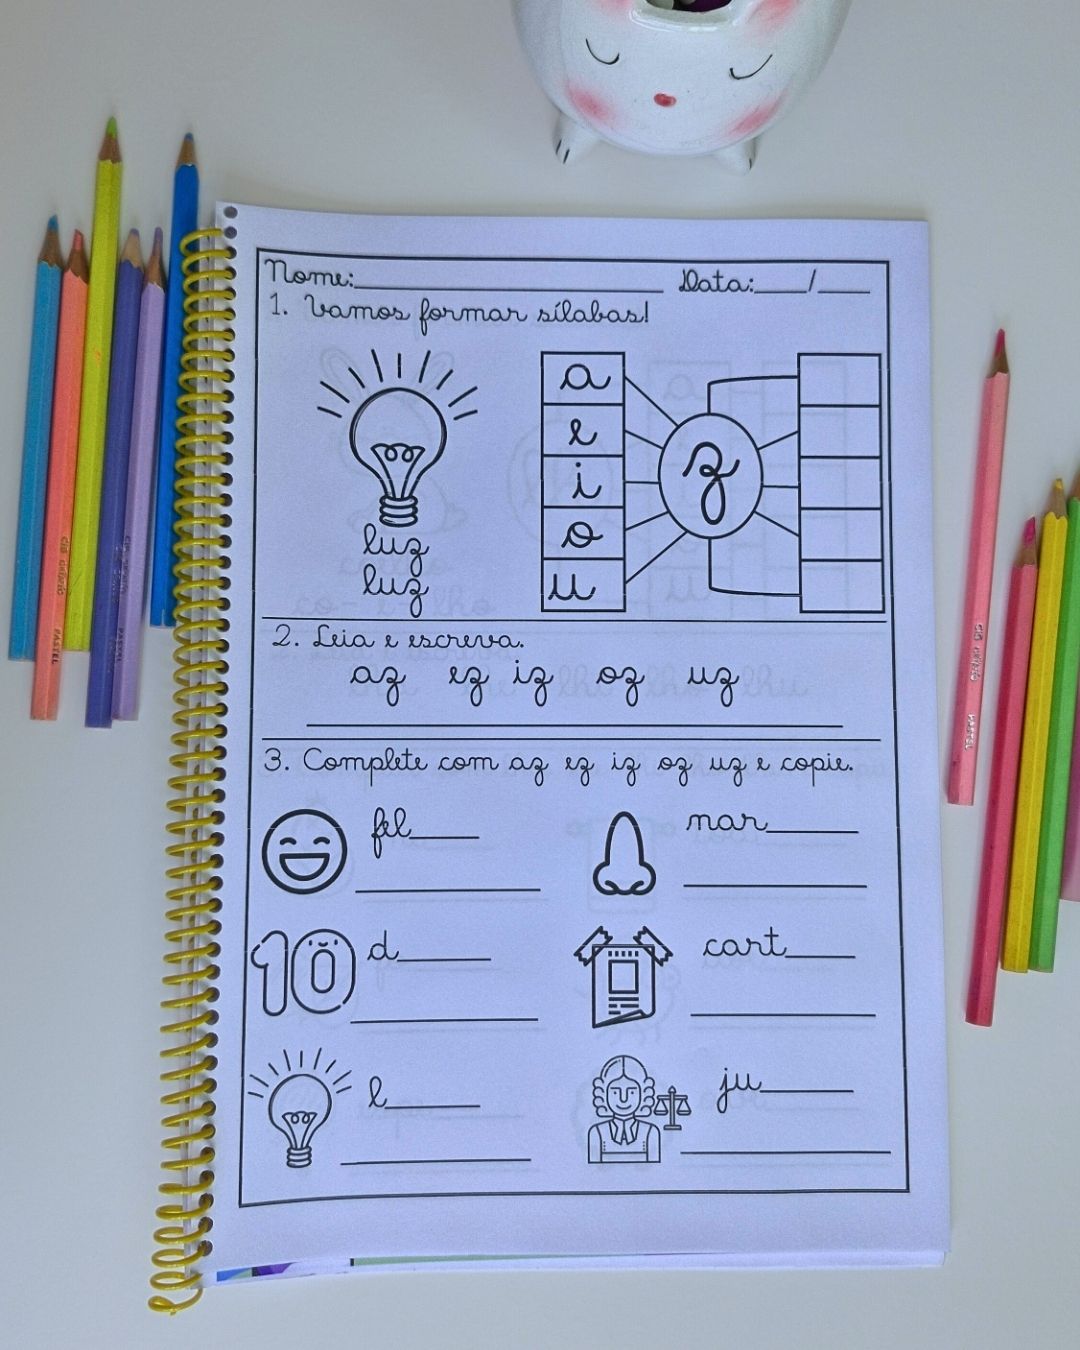 Nome:____________ Data:___/___
1. Vamos formar sílabas!
luz
luz
a
e
i
o
u
z
2. Leia e escreva.
az ez iz oz uz
3. Complete com az ez iz oz uz e copie.
fel____ nar____
10 d____ cart____
l____ ju____